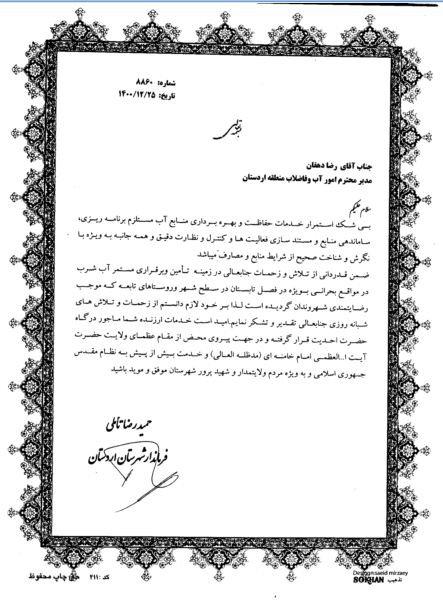 شماره: ۸۸۶۰
تاریخ: ۱۴۰۰/۱۲/۲۵
جناب آقای رضا دهقان
مدیر محترم امور آب وفاضلاب منطقه اردستان
سلام علیکم
بی شک استمرار خدمات حفاظت و بهره برداری منابع آب مستلزم برنامه ریزی،
ساماندهی منابع و مستند سازی فعالیت ها و کنترل و نظارت دقیق و همه جانبه به ویژه با
نگرش و شناخت صحیح از شرایط منابع و مصارف میباشد
ضمن قدردانی از تلاش و زحمات جنابعالی در زمینه تأمین وبرقراری مستمر آب شرب
در مواقع بحرانی بویژه در فصل تابستان در سطح شهر وروستاهای تابعه که موجب
رضایتمندی شهروندان گردیده است لذا بر خود لازم دانستم از زحمات و تلاش های
شبانه روزی جنابعالی تقدیر و تشکر نمایم.امید است خدمات ارزنده شما ماجور درگاه
حضرت احدیت قرار گرفته و در جهت پیروی محض از مقام عظمای ولایت حضرت
آیت ا...العظمی امام خامنه ای (مدظله العالی) و خدمت بیش از پیش به نظام مقدس
جمهوری اسلامی و به ویژه مردم ولایتمدار و شهید پرور شهرستان موفق و موید باشید
حمید رضا تأملی
فرماندار شهرستان اردستان
کد: ۲۱۱ حق چاپ محفوظ
Design:saeid mirzaey
تذهیب SOKHAN